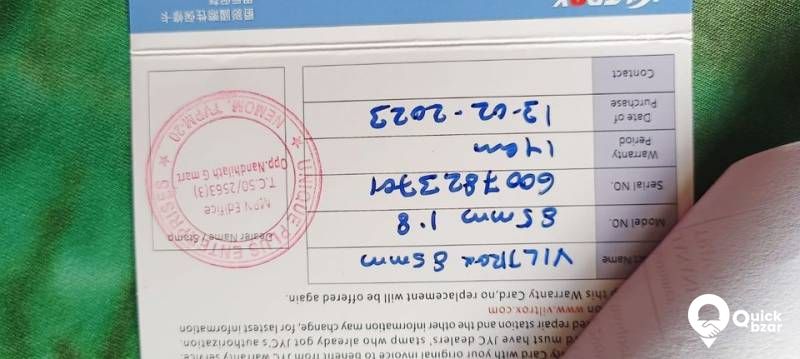 Card with your original invoice to benefit from JYC warranty service.
must have JYC dealers' stamp who already got JYC's authorization.
repair station and the other information may change, for fastest information
on www.viltrox.com
this Warranty Card,no replacement will be offered again.
Name VILTROX 85mm
Model NO. 85mm 1.8
Serial NO. 6007823701
Warranty
Period
Date of
Purchase 13-02-2023
Contact
Dealer Name / Stamp
★ UNIQUE PLUS ENTERPRISES ★
NEMOM, TVPM-20
MPN Edifice
T.C.50/2563(3)
Opp.Nandhilath G mart
國際性保修卡
Quick
bzar